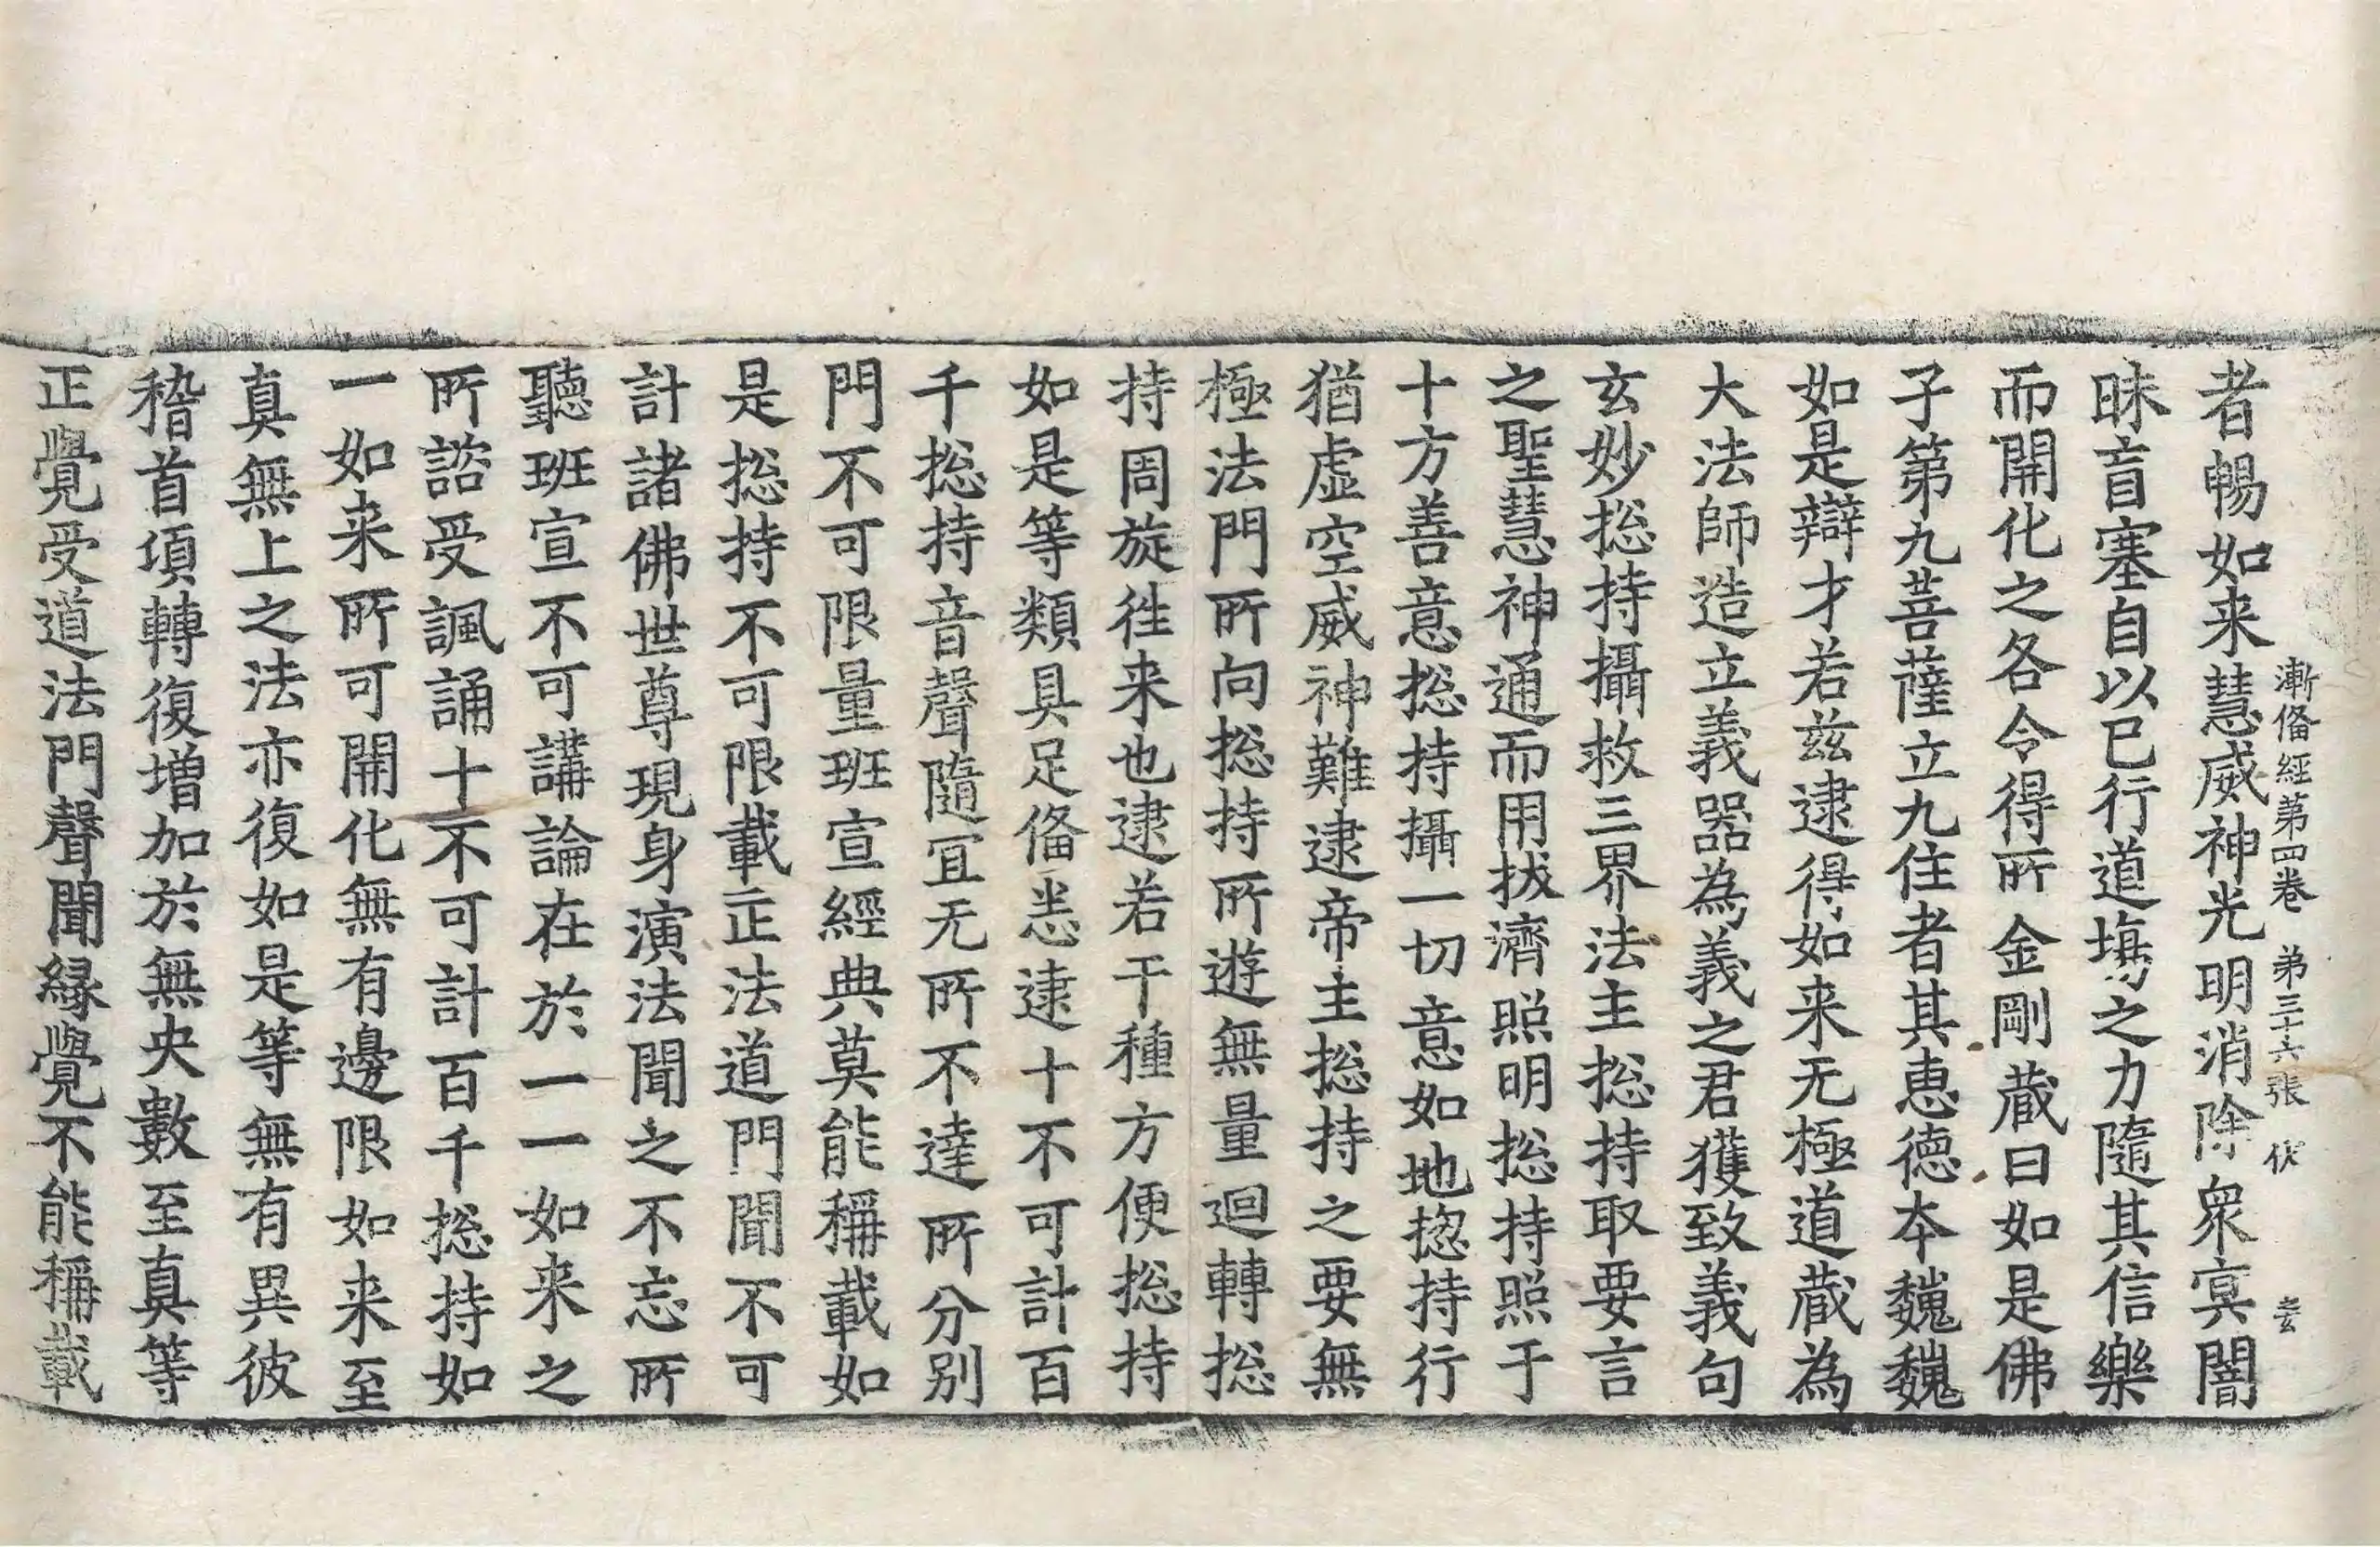 漸俻經第四卷　第三十六張　伏
者暢如来慧威神光明消除衆𡨋闇
昧盲塞自以已行道場之力隨其信樂
而開化之各令得所金剛藏曰如是佛
子第九菩薩立九住者其恵德本魏魏
如是辯才若兹逮得如来无極道藏為
大法師造立義器為義之君獲致義句
玄妙揔持攝救三界法主揔持取要言
之聖慧神通而用拔濟照明揔持照于
十方善意揔持攝一切意如地揔持行
猶虛空威神難逮帝主揔持之要無
極法門所向揔持所遊無量迴轉揔
持周旋徃来也逮若干種方便揔持
如是等類具足俻悉逮十不可計百
千揔持音聲隨冝无所不達所分别
門不可限量班宣經典莫能稱載如
是揔持不可限載正法道門聞不可
計諸佛世尊現身演法聞之不忘所
聽班宣不可講論在於一一如来之
所諮受諷誦十不可計百千揔持如
一如来所可開化無有邊限如来至
真無上之法亦復如是等無有異彼
稽首項轉復增加於無央數至真等
正覺受道法門聲聞緣覺不能稱載